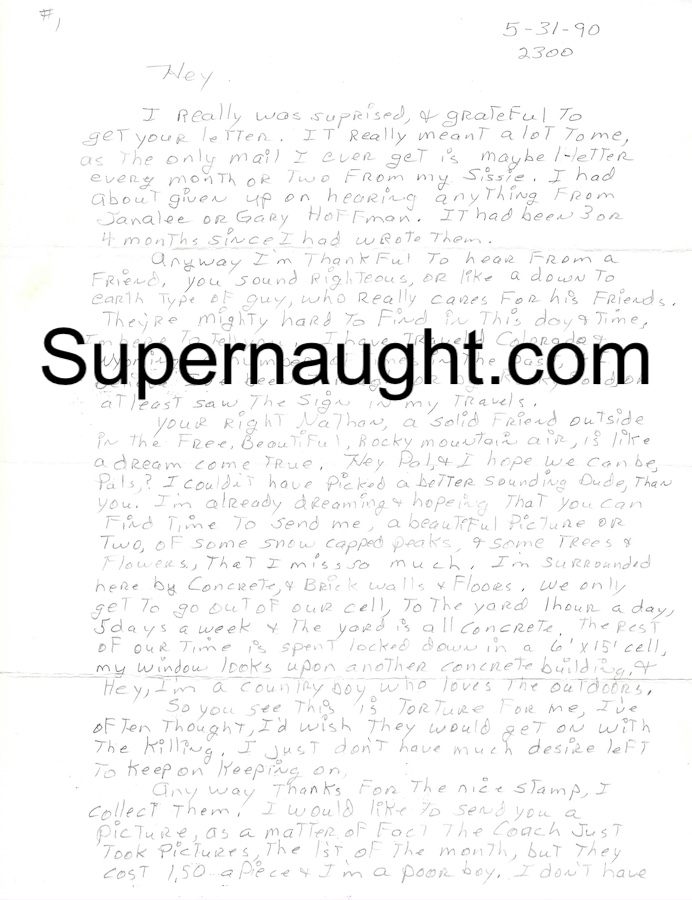 #1
5-31-90
2300
Hey.
I Really was suprised, & grateful To
get your letter. IT Really meant a lot To me,
as The only mail I ever get is maybe 1-letter
every month or Two From my Sissie. I had
about given up on hearing anything From
Janalee or Gary Hoffman. IT had been 3 or
4 months since I had wrote Them.
Anyway I'm Thankful To hear From a
Friend. you sound Righteous, or like a down To
earth Type of guy, who Really cares For his Friends.
They're mighty hard To Find in This day & Time,
I have Traveled Colorado &
Supernaught.com
at least saw The Sign in my Travels.
your Right Nathan, a solid Friend outside
in the Free, Beautiful, Rocky mountain air, is like
a dream come True. Hey Pal, & I hope we can be,
Pals,? I couldn't have picked a better sounding Dude, Than
you. I'm already dreaming & hopeing That you can
Find Time To send me, a beautiful Picture or
Two, of some snow capped peaks, & some Trees &
Flowers, That I miss so much. I'm surrounded
here by Concrete, & Brick walls & Floors. We only
get To go out of our cell, To The yard 1hour a day,
5days a week & The yard is all concrete. The Rest
of our Time is spent locked down in a 6'x15' cell,
my window looks upon another concrete building, &
Hey, I'm a country boy who loves The outdoors.
So you see This is Torture For me, I've
often Thought, I'd wish They would get on with
The Killing. I just don't have much desire left
To keep on keeping on,
Any way Thanks For The nice stamp, I
collect Them. I would like To send you a
picture, as a matter of Fact The Coach Just
Took Pictures, The 1st of The month, but They
cost 1.50 apiece & I'm a poor boy. I don't have